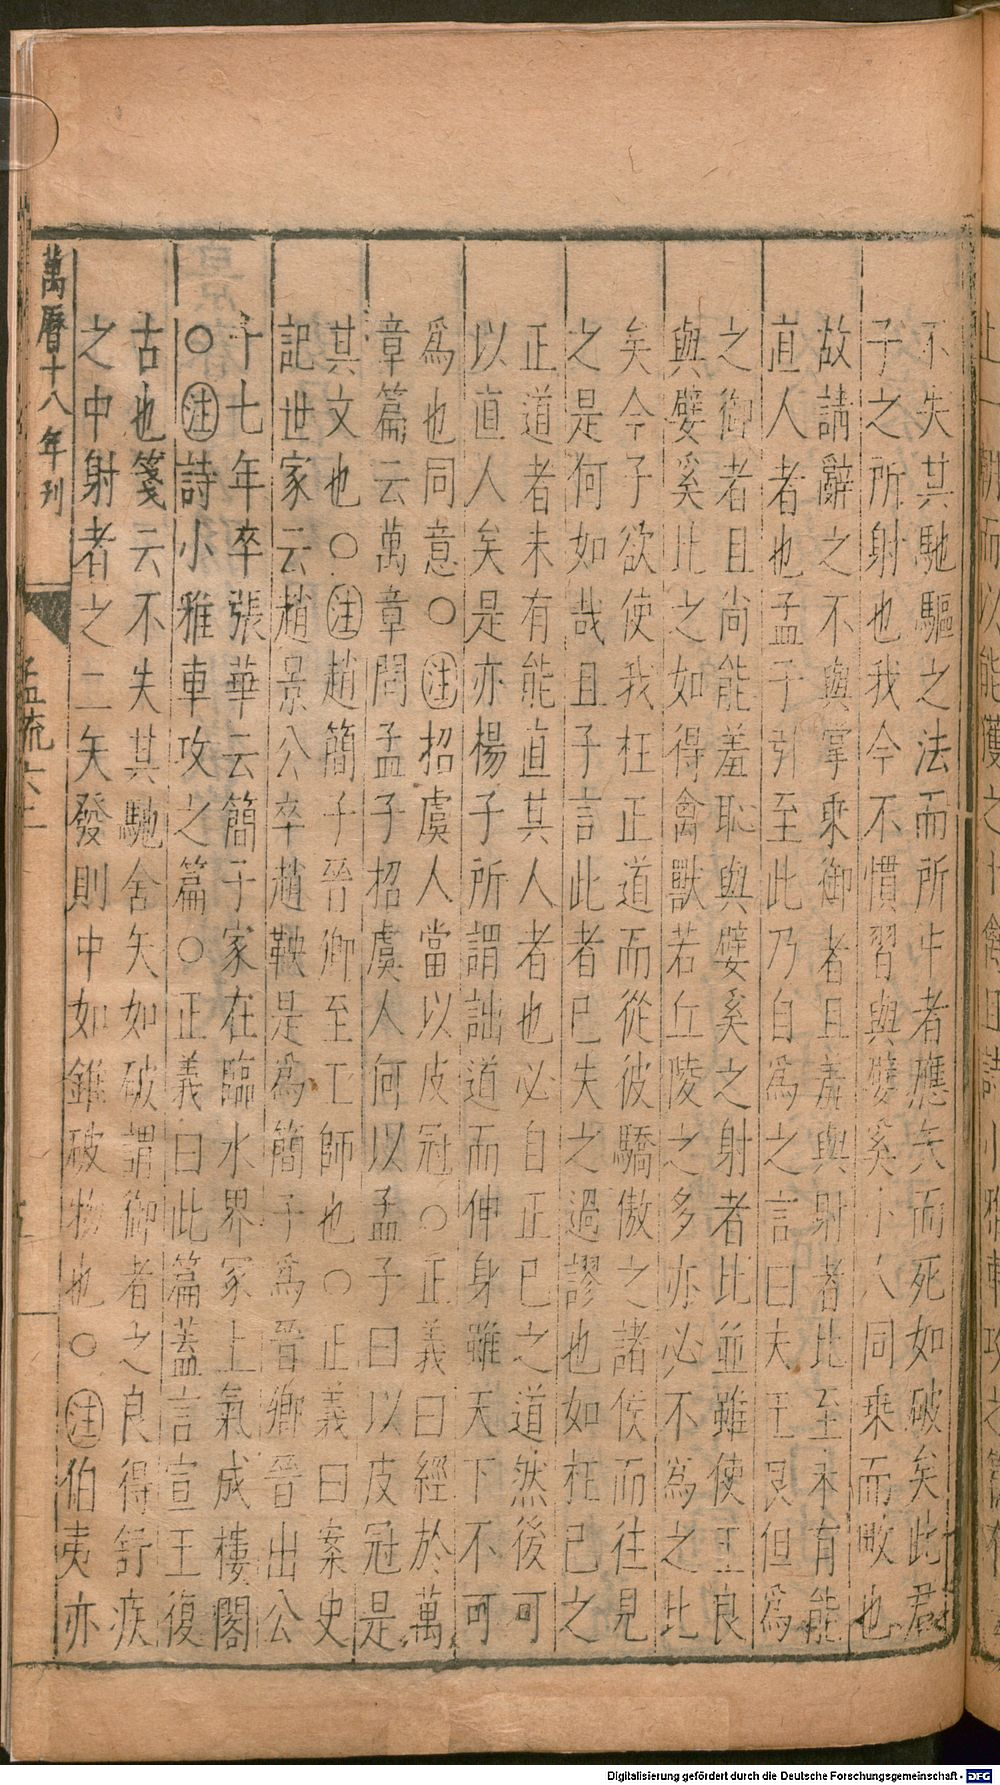 不失其馳驅之法而所中者應矢而死如破矣此君
子之所射也我今不慣習與嬖奚小人同乘而畋也
故請辭之不與掌乘御者且羞與射者比至未有能
直人者也孟子引至此乃自爲之言曰夫王良但爲
之御者且尚能羞恥與嬖奚之射者比並雖使王良
與嬖奚比之如得禽獸若丘陵之多亦必不爲之比
矣今子欲使我枉正道而從彼驕傲之諸侯而往見
之是何如哉且子言此者已失之過謬也如枉已之
正道者未有能直其人者也必自正已之道然後可
以直人矣是亦楊子所謂詘道而伸身雖天下不可
爲也同意○注招虞人當以皮冠○正義曰經於萬
章篇云萬章問孟子招虞人何以孟子曰以皮冠是
其文也○注趙簡子晉卿至工師也○正義曰案史
記世家云趙景公卒趙鞅是爲簡子爲晉卿晉出公
十七年卒張華云簡子家在臨水界冢上氣成樓閣
○注詩小雅車攻之篇○正義曰此篇蓋言宣王復
古也箋云不失其馳舍矢如破謂御者之良得舒疾
之中射者之二矢發則中如錐破物也○注伯夷亦
萬曆十八年刊
孟疏六上
Digitalisierung gefördert durch die Deutsche Forschungsgemeinschaft - DFG